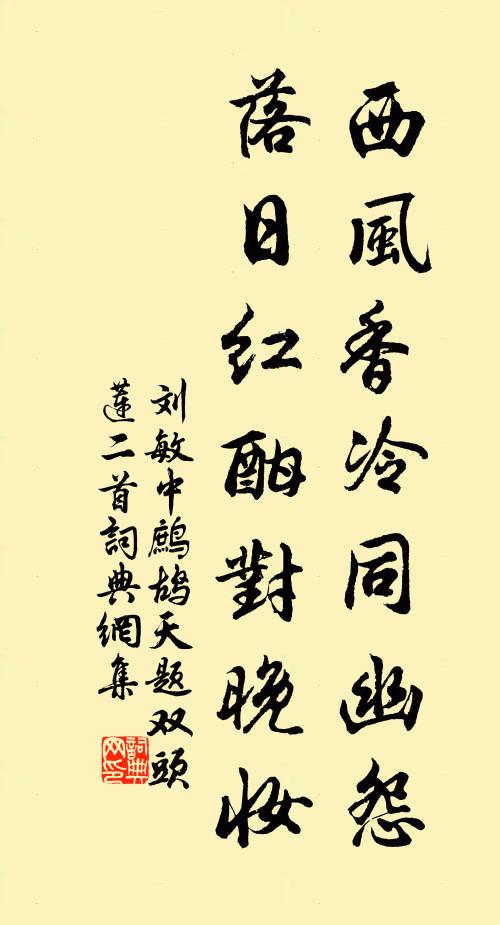 西風香冷同幽怨
落日红酣對晚妆
刘敏中鷓鴣天题双頭
蓮二首詞典網集
詞典网印